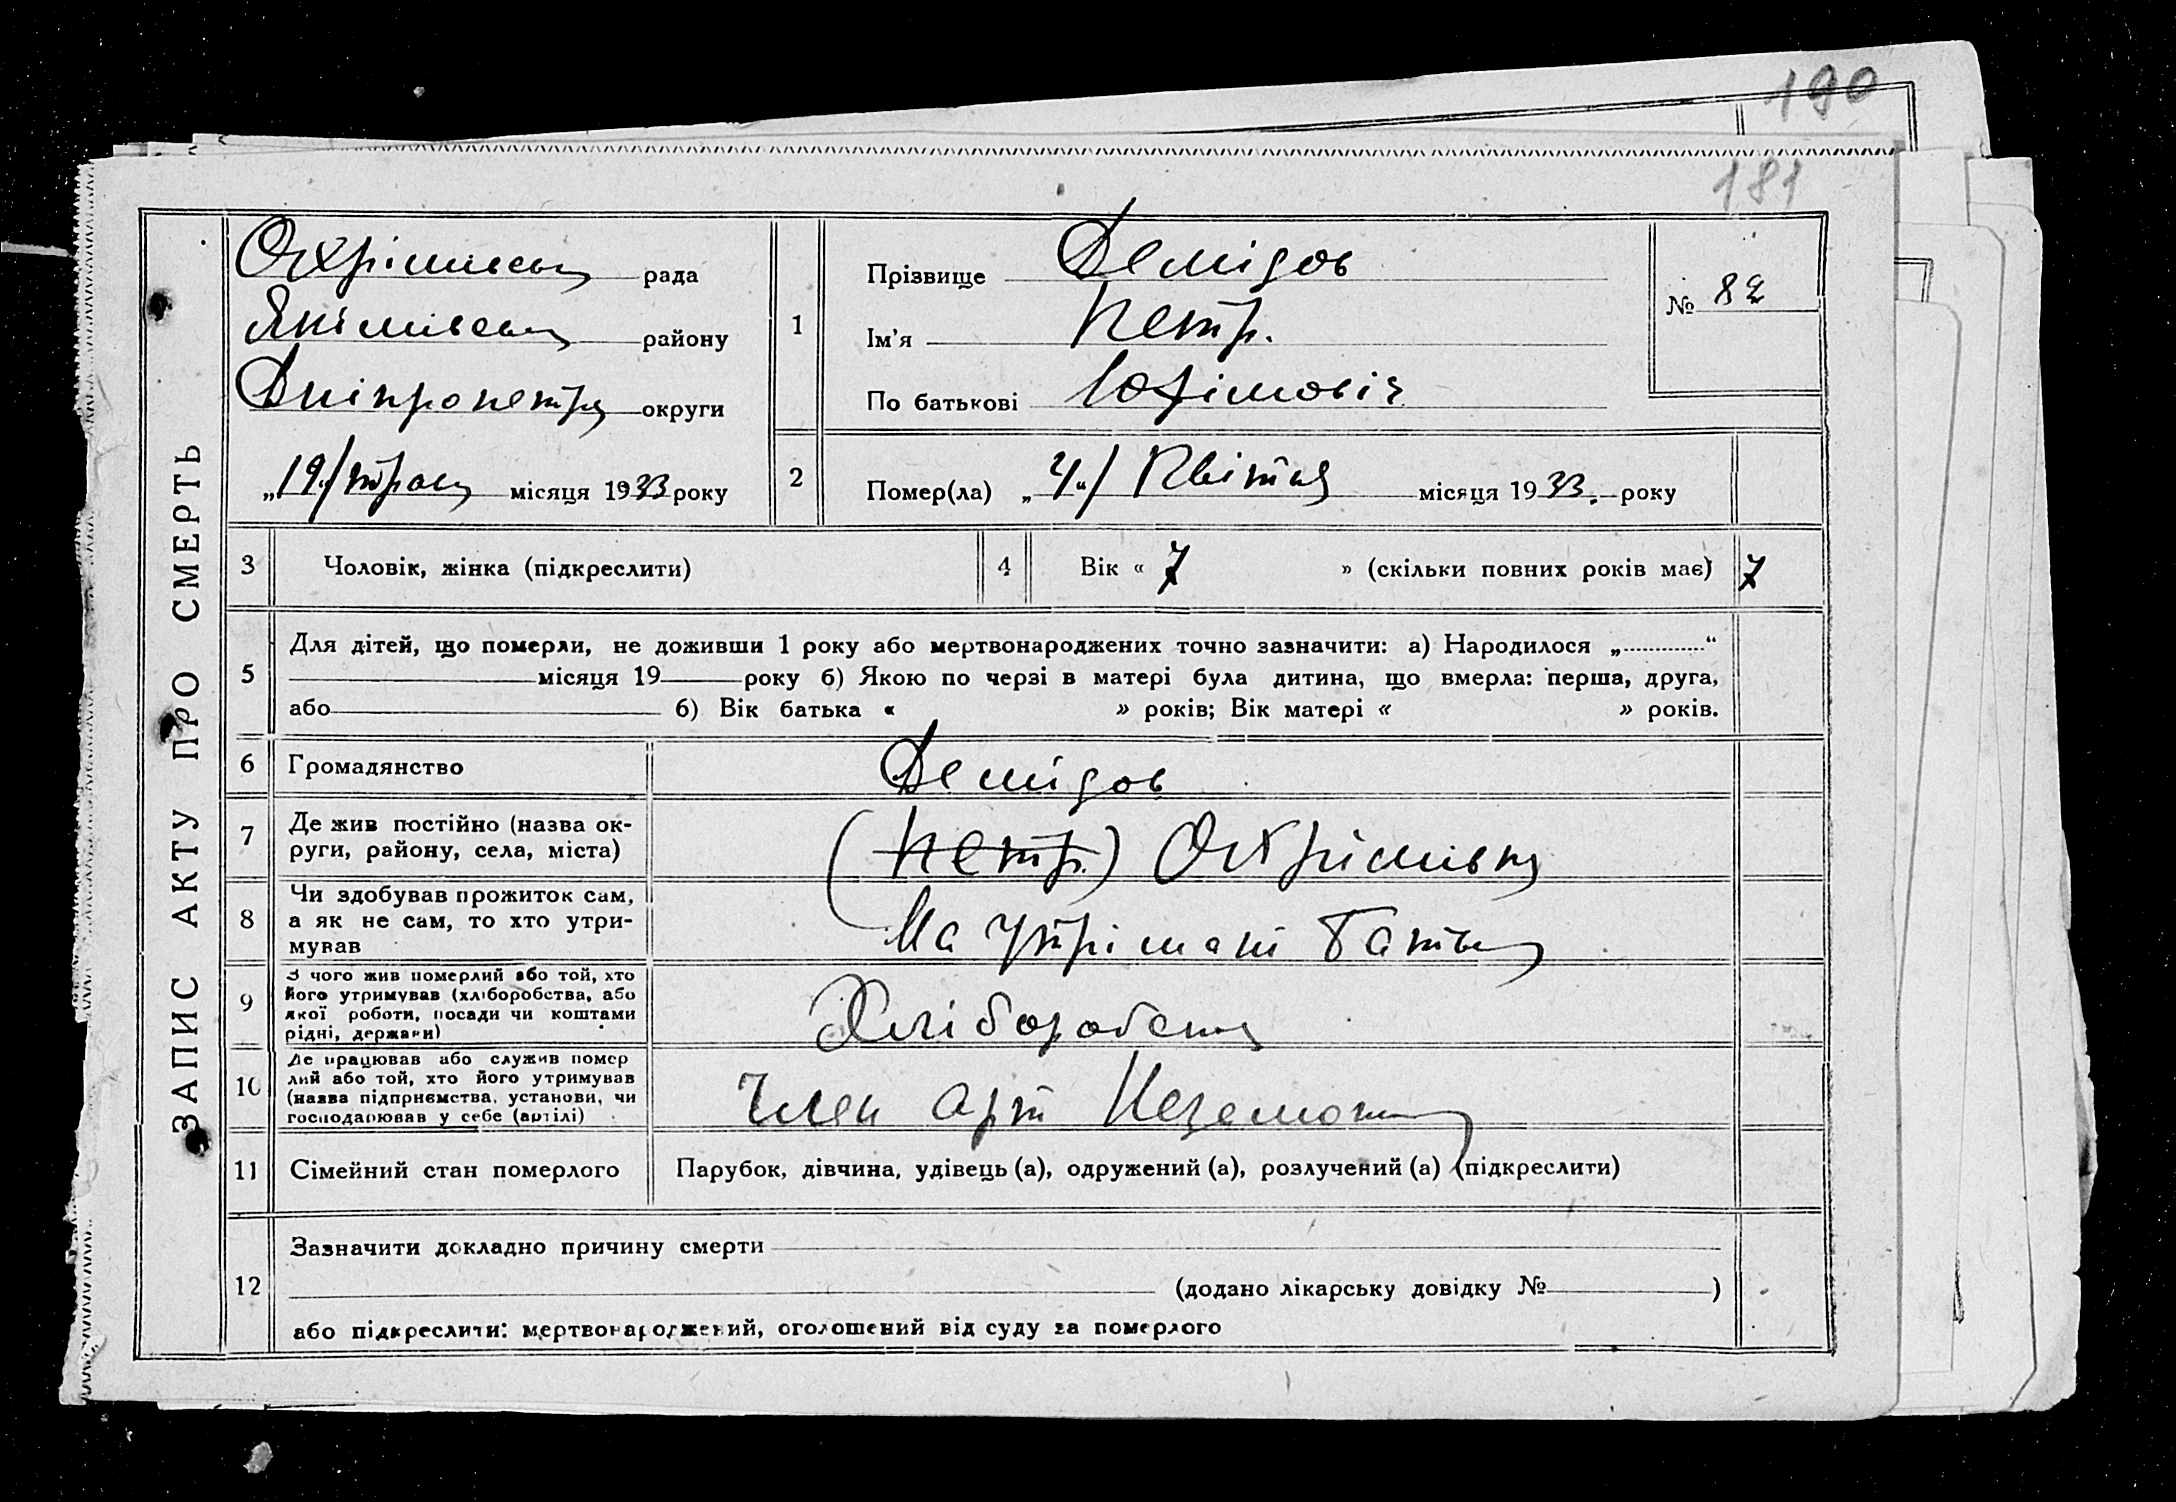 190
181
ЗАПИС АКТУ ПРО СМЕРТЬ
Охрімівська рада
Якімівськ району
Дніпропетр округи
„19/травня місяця 1933 року
1
Прізвище Демідов
Ім'я Петр.
По батькові Юхімовіч
№ 82
2
Помер(ла) „4"/ Квітня місяця 1933. року
3 Чоловік, жінка (підкреслити)
4 Вік « 7 » (скільки повних років має) 7
5
Для дітей, що померли, не доживши 1 року або мертвонароджених точно зазначити: а) Народилося „ “
місяця 19 року б) Якою по черзі в матері була дитина, що вмерла: перша, друга,
або б) Вік батька « » років; Вік матері « » років.
6 Громадянство Демідов
7 Де жив постійно (назва ок-
руги, району, села, міста)
(Петр.) Охрімівка
8 Чи здобував прожиток сам,
а як не сам, то хто утри-
мував
На утрімані батьк
9 З чого жив померлий або той, хто
його утримував (хліборобства, або
якої роботи, посади чи коштами
рідні, держави)
Хліборобства
10 Де працював або служив помер
лий або той, хто його утримував
(назва підприємства, установи, чи
господарював у себе (артілі)
Член арт Незаможн
11 Сімейний стан померлого
Парубок, дівчина, удівець (а), одружений (а), розлучений (а) (підкреслити)
12
Зазначити докладно причину смерти
(додано лікарську довідку № )
або підкреслити: мертвонароджений, оголошений від суду за померлого